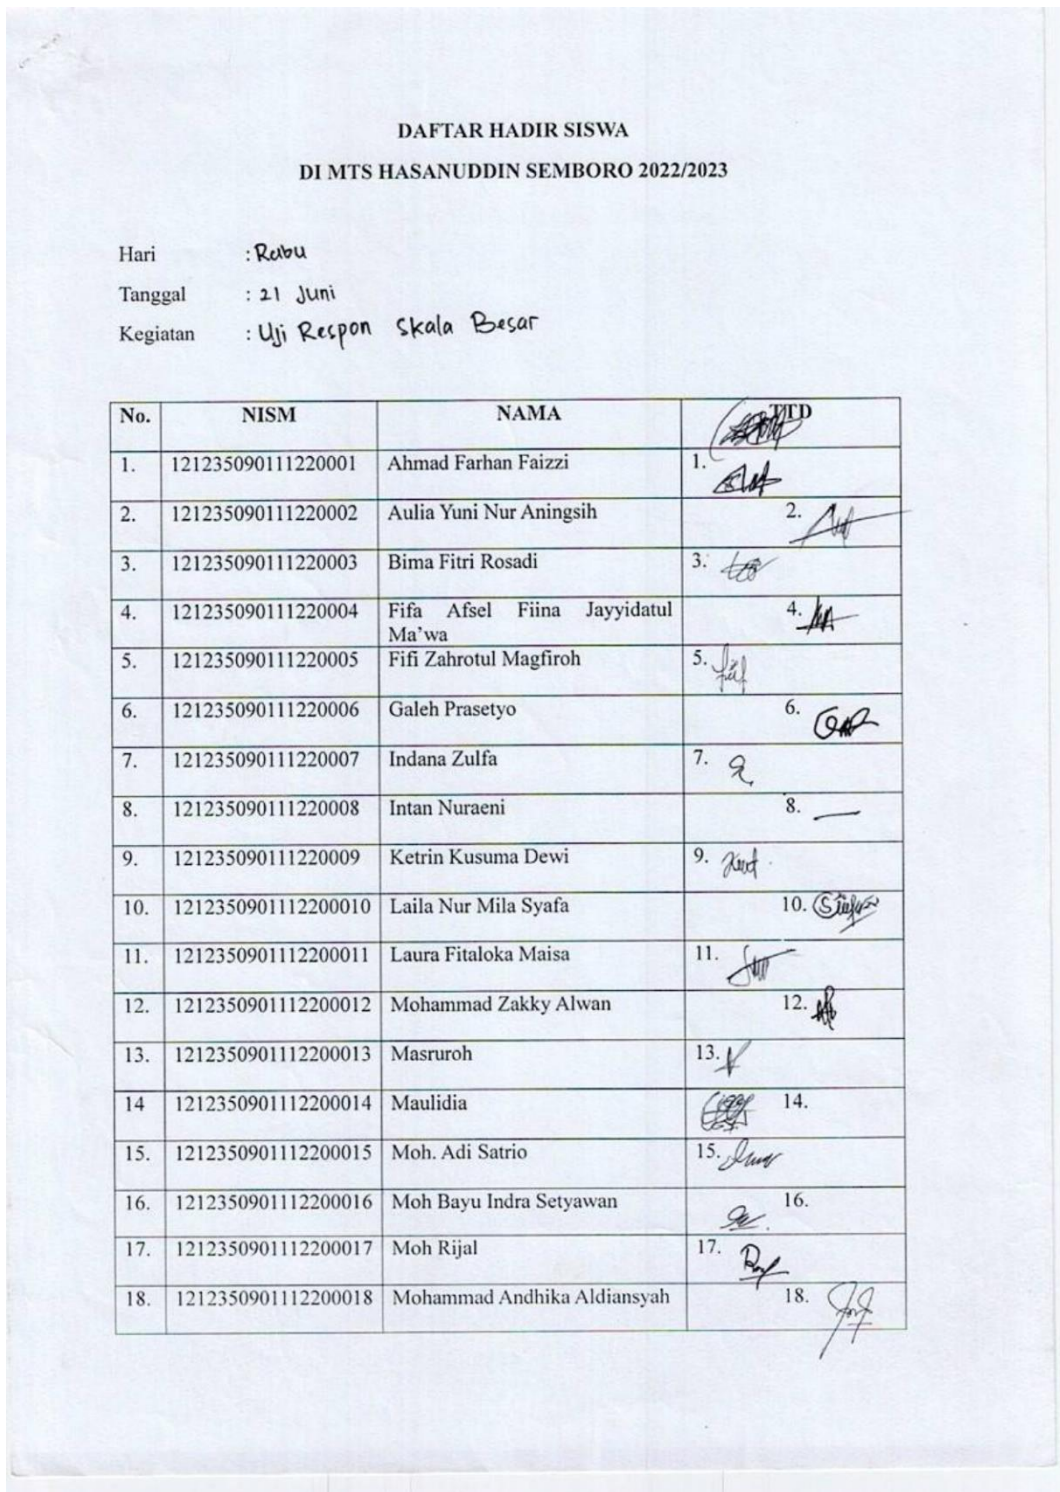 DAFTAR HADIR SISWA
DI MTS HASANUDDIN SEMBORO 2022/2023
Hari : Rabu
Tanggal : 21 Juni
Kegiatan : Uji Respon Skala Besar
No. NISM NAMA TTD
1. 121235090111220001 Ahmad Farhan Faizzi 1.
2. 121235090111220002 Aulia Yuni Nur Aningsih 2.
3. 121235090111220003 Bima Fitri Rosadi 3.
4. 121235090111220004 Fifa Afsel Fiina Jayyidatul 4.
Ma'wa
5. 121235090111220005 Fifi Zahrotul Magfiroh 5.
6. 121235090111220006 Galeh Prasetyo 6.
7. 121235090111220007 Indana Zulfa 7.
8. 121235090111220008 Intan Nuraeni 8.
9. 121235090111220009 Ketrin Kusuma Dewi 9.
10. 1212350901112200010 Laila Nur Mila Syafa 10.
11. 1212350901112200011 Laura Fitaloka Maisa 11.
12. 1212350901112200012 Mohammad Zakky Alwan 12.
13. 1212350901112200013 Masruroh 13.
14 1212350901112200014 Maulidia 14.
15. 1212350901112200015 Moh. Adi Satrio 15.
16. 1212350901112200016 Moh Bayu Indra Setyawan 16.
17. 1212350901112200017 Moh Rijal 17.
18. 1212350901112200018 Mohammad Andhika Aldiansyah 18.